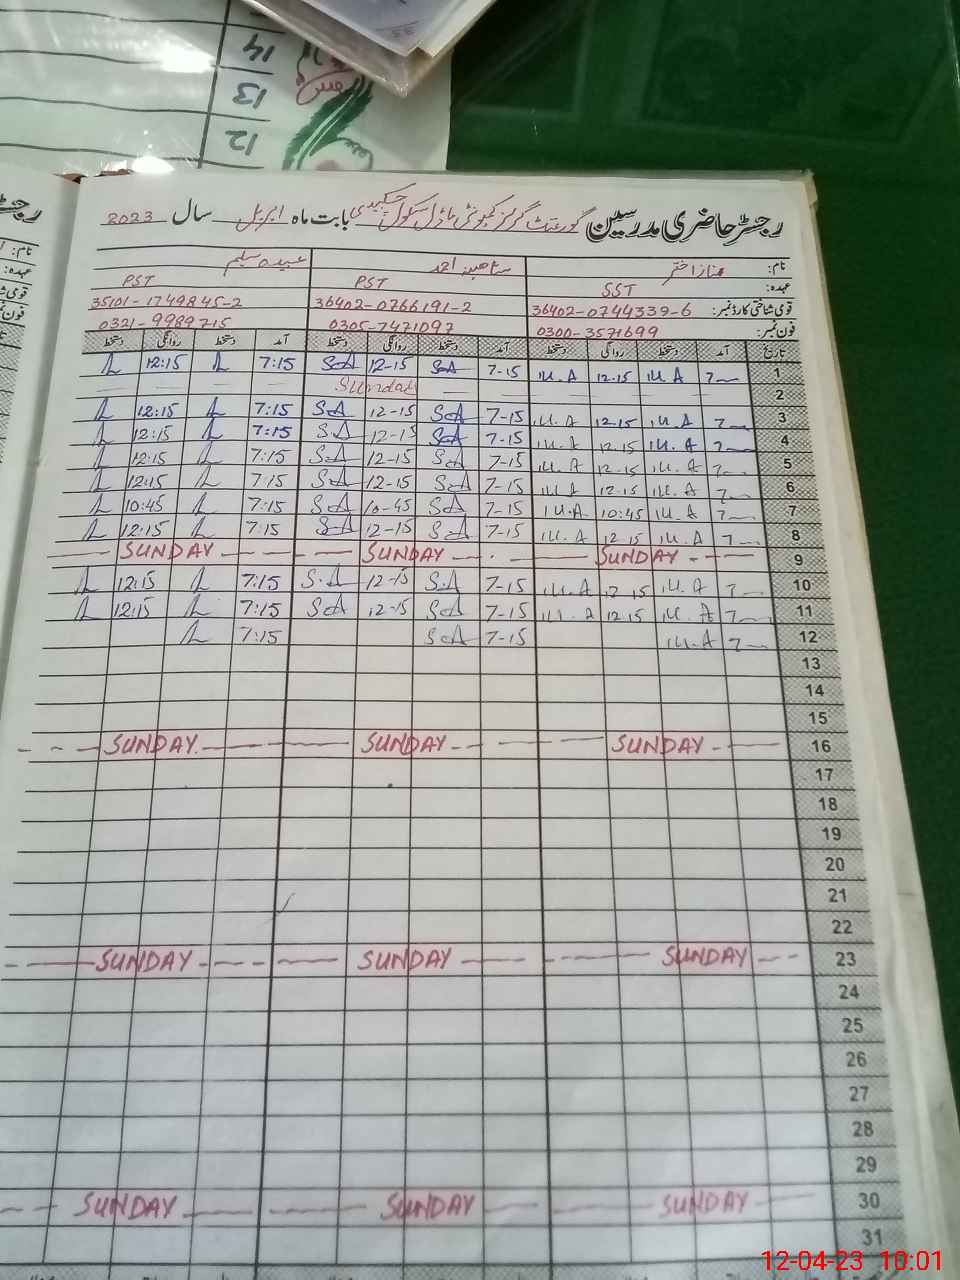 14
13
12
رجسٹر حاضری مدرسین گورنمنٹ گرلز کمیونٹی ماڈل سکول بابت ماہ اپریل سال 2023
نام: ممتاز اختر عبیدہ سلیم
عہدہ: SST PST PST
قومی شناختی کارڈ نمبر: 36402-0744339-6 36402-0766191-2 35101-1749845-2
فون نمبر: 0300-3571699 0305-7471097 0321-9989715
تاریخ آمد دستخط روانگی دستخط آمد دستخط روانگی دستخط آمد دستخط روانگی دستخط
1 7 M.A 12.15 M.A 7-15 SA 12-15 SA 7:15 12:15
2 Sunday
3 7 M.A 12.15 M.A 7-15 SA 12-15 SA 7:15 12:15
4 7 M.A 12.15 M.A 7-15 SA 12-15 SA 7:15 12:15
5 7 M.A 12.15 M.A 7-15 SA 12-15 SA 7:15 12:15
6 7 M.A 12.15 M.A 7-15 SA 12-15 SA 7:15 12:15
7 7 M.A 10:45 M.A 7-15 SA 10-45 SA 7:15 10:45
8 7 M.A 12.15 M.A 7-15 SA 12-15 SA 7:15 12:15
9 SUNDAY SUNDAY SUNDAY
10 7 M.A 12.15 M.A 7-15 S.A 12-15 S.A 7:15 12:15
11 7 M.A 12.15 M.A 7-15 SA 12-15 SA 7:15 12:15
12 7 M.A 7-15 SA 7:15
13
14
15
16 SUNDAY SUNDAY SUNDAY
17
18
19
20
21
22
23 SUNDAY SUNDAY SUNDAY
24
25
26
27
28
29
30 SUNDAY SUNDAY SUNDAY
31
12-04-23 10:01